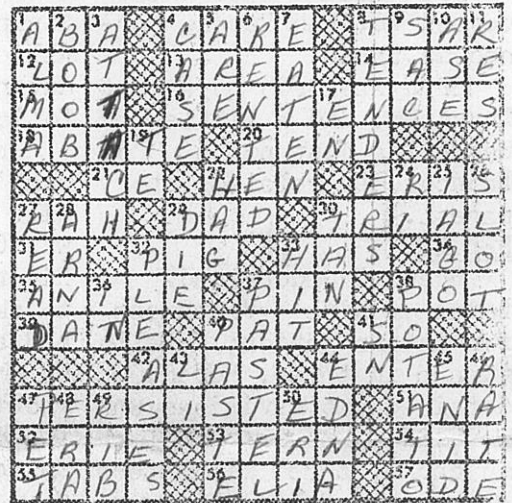 1A 2B 3A 4C 5A 6R 7E 8T 9S 10A 11R
12L O T 13A R E A 14E A S E
15M O A 16S E N T 17E N C E S
18A B A 19T E 20T E N D
21C E 22H E N 23E 24R 25I 26S
27R 28A H 29D A D 30T R I A L
31E R 32P I G 33H A S 34G O
35A N 36I L E 37P I N 38P O T
39D A N E 40P A T 41S O
42A 43L A S 44E N T 45E 46R
47P 48E 49R S I S T 50E D 51A N A
52E R I E 53T E R N 54T I T
55T A B S 56E L I A 57O D E